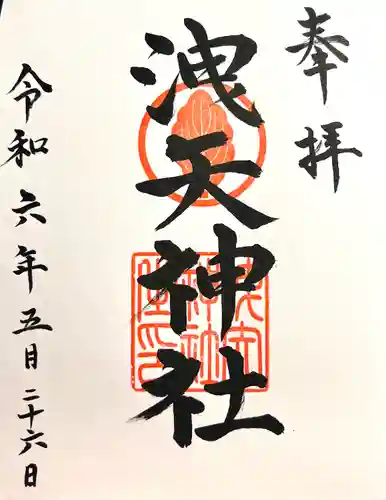 奉拝
洩天神社
令和六年五月二十六日